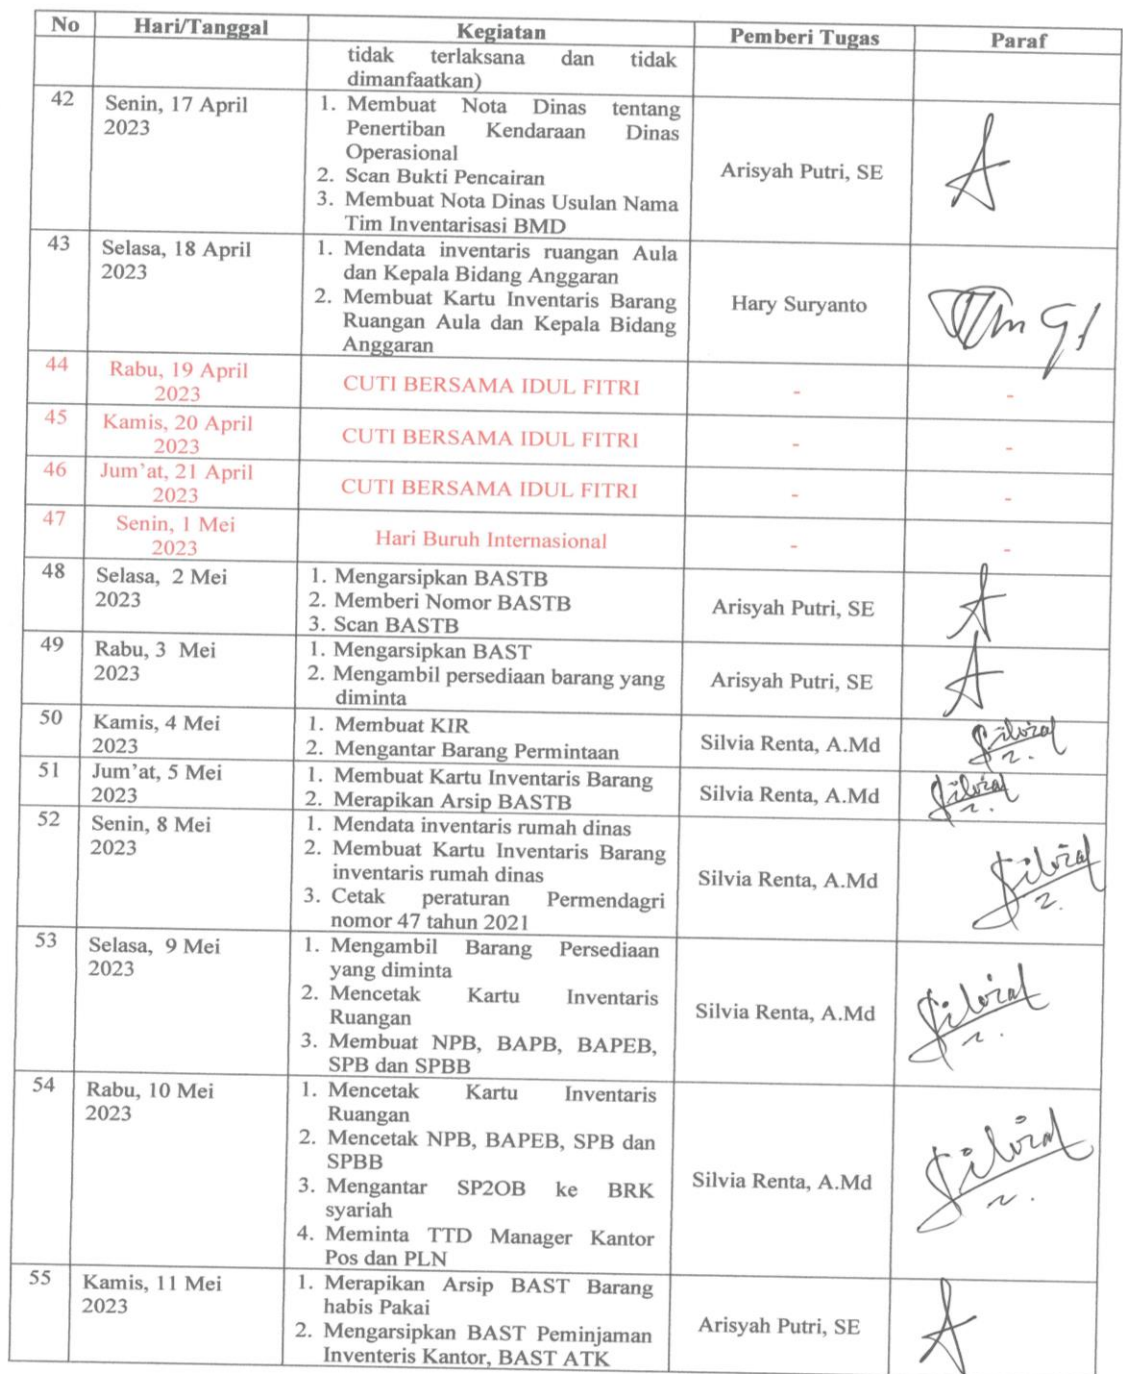 No Hari/Tanggal Kegiatan Pemberi Tugas Paraf
tidak terlaksana dan tidak
dimanfaatkan)
42 Senin, 17 April
2023
1. Membuat Nota Dinas tentang
Penertiban Kendaraan Dinas
Operasional
2. Scan Bukti Pencairan
3. Membuat Nota Dinas Usulan Nama
Tim Inventarisasi BMD
Arisyah Putri, SE
43 Selasa, 18 April
2023
1. Mendata inventaris ruangan Aula
dan Kepala Bidang Anggaran
2. Membuat Kartu Inventaris Barang
Ruangan Aula dan Kepala Bidang
Anggaran
Hary Suryanto
44 Rabu, 19 April
2023
CUTI BERSAMA IDUL FITRI - -
45 Kamis, 20 April
2023
CUTI BERSAMA IDUL FITRI - -
46 Jum'at, 21 April
2023
CUTI BERSAMA IDUL FITRI - -
47 Senin, 1 Mei
2023
Hari Buruh Internasional - -
48 Selasa, 2 Mei
2023
1. Mengarsipkan BASTB
2. Memberi Nomor BASTB
3. Scan BASTB
Arisyah Putri, SE
49 Rabu, 3 Mei
2023
1. Mengarsipkan BAST
2. Mengambil persediaan barang yang
diminta
Arisyah Putri, SE
50 Kamis, 4 Mei
2023
1. Membuat KIR
2. Mengantar Barang Permintaan
Silvia Renta, A.Md
51 Jum'at, 5 Mei
2023
1. Membuat Kartu Inventaris Barang
2. Merapikan Arsip BASTB
Silvia Renta, A.Md
52 Senin, 8 Mei
2023
1. Mendata inventaris rumah dinas
2. Membuat Kartu Inventaris Barang
inventaris rumah dinas
3. Cetak peraturan Permendagri
nomor 47 tahun 2021
Silvia Renta, A.Md
53 Selasa, 9 Mei
2023
1. Mengambil Barang Persediaan
yang diminta
2. Mencetak Kartu Inventaris
Ruangan
3. Membuat NPB, BAPB, BAPEB,
SPB dan SPBB
Silvia Renta, A.Md
54 Rabu, 10 Mei
2023
1. Mencetak Kartu Inventaris
Ruangan
2. Mencetak NPB, BAPEB, SPB dan
SPBB
3. Mengantar SP2OB ke BRK
syariah
4. Meminta TTD Manager Kantor
Pos dan PLN
Silvia Renta, A.Md
55 Kamis, 11 Mei
2023
1. Merapikan Arsip BAST Barang
habis Pakai
2. Mengarsipkan BAST Peminjaman
Inventeris Kantor, BAST ATK
Arisyah Putri, SE